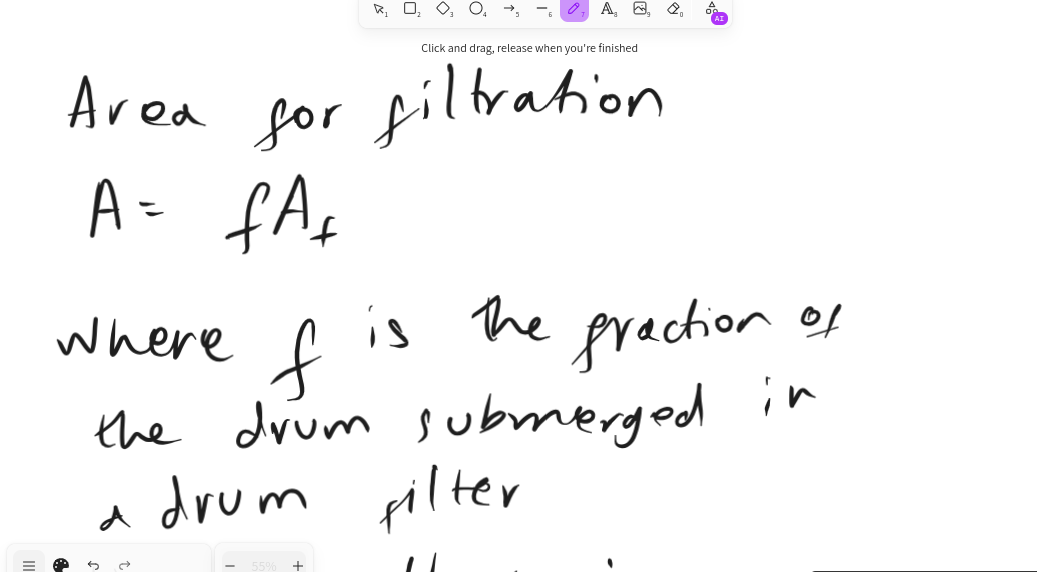 1 2 3 4 5 6 7 A 8 9 0 AI
Click and drag, release when you're finished
Area for filtration
A = fA_f
where f is the fraction of
the drum submerged in
a drum filter
55%